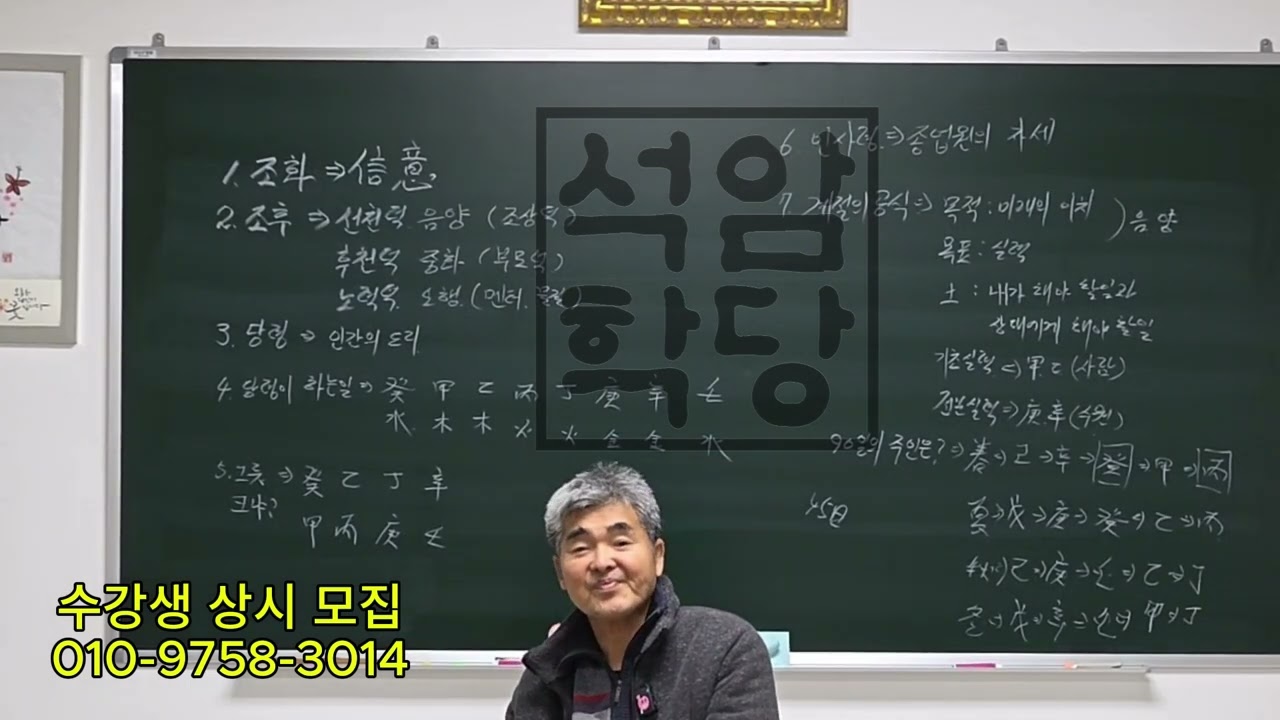 1. 조화 ⇒ 信意
2. 조후 ⇒ 선천덕 음양 (조상덕)
후천덕 중화 (부모덕)
노력덕 오행 (멘터. 물질)
3. 당령 ⇒ 인간의 도리
4. 당령이 하는일 ⇒ 癸 甲 乙 丙 丁 庚 辛 壬
水 木 木 火 火 金 金 水
5. 그릇 ⇒ 癸 乙 丁 辛
크냐?
甲 丙 庚 壬
6. 인사령 ⇒ 종업원의 자세
7. 계절의 공식 ⇒ 목적 : 미래의 이치 ) 음양
목표 : 실력
土 : 내가 해야 할일과
상대에게 해야 할일
기초실력 ⇒ 甲乙 (사람)
전문실력 ⇒ 庚辛 (수원)
90일의 주인은? ⇒ 春 ⇒ 己 ⇒ 辛 ⇒ 癸 ⇒ 甲 ⇒ 丙
45日
夏 ⇒ 戊 ⇒ 庚 ⇒ 癸 ⇒ 乙 ⇒ 丙
秋 ⇒ 己 ⇒ 庚 ⇒ 壬 ⇒ 乙 ⇒ 丁
冬 ⇒ 戊 ⇒ 辛 ⇒ 壬 ⇒ 甲 ⇒ 丁
석암
학당
수강생 상시 모집
010-9758-3014